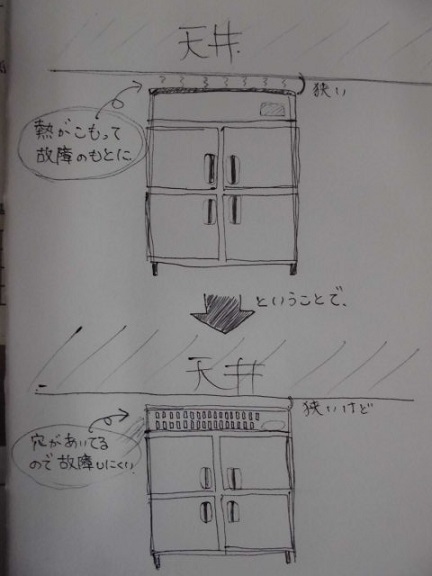 天井
狭い
熱がこもって
故障のもとに
ということで、
天井
狭いけど
穴があいてる
ので故障しにくい